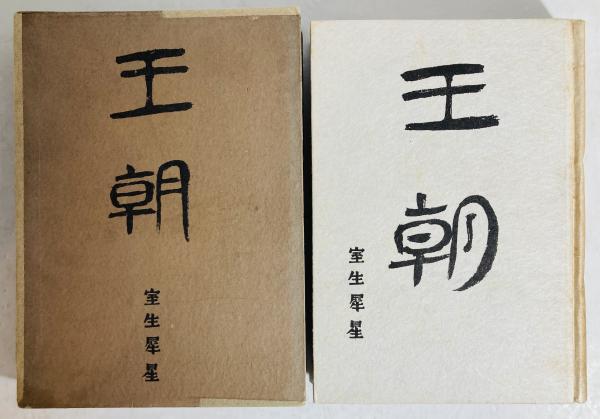 王朝
室生犀星
王朝
室生犀星